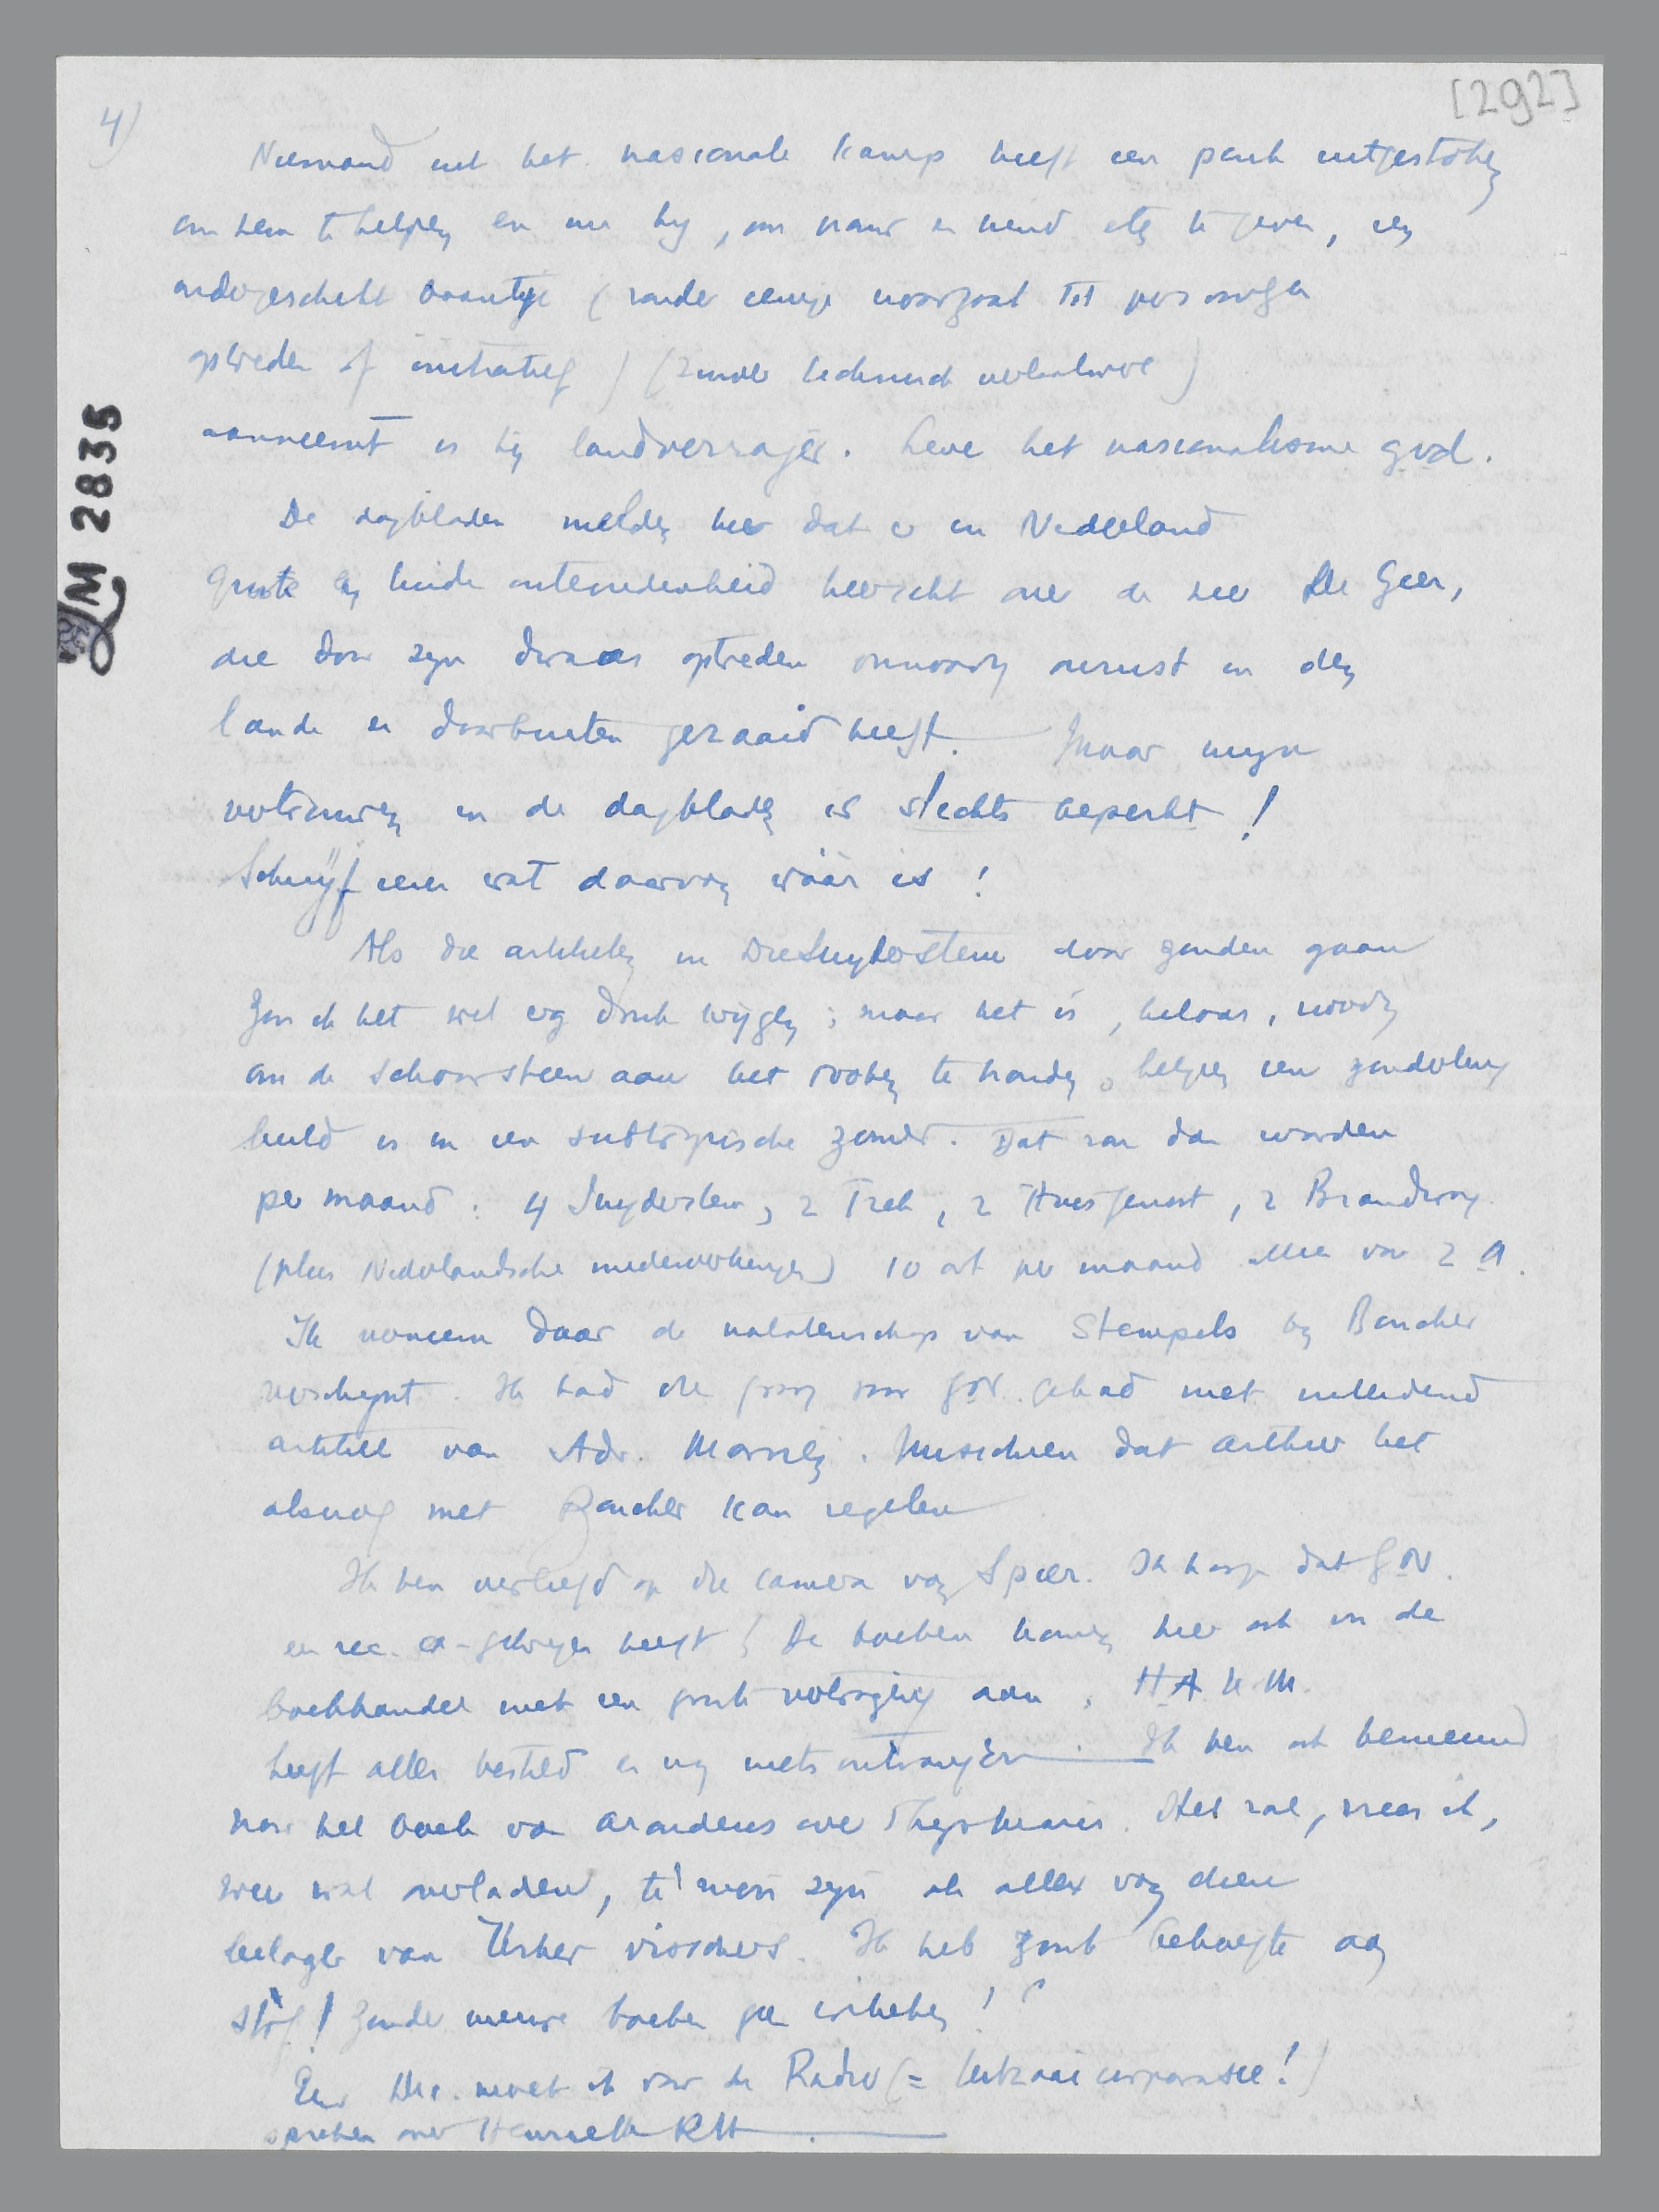 [292]
4)
Niemand uit het nasionale kamp heeft een poot uitgestoken
om hem te helpen en nu hij, om vrouw en kind eten te geven, een
ondergeschikt baantje (zonder eenige noodzaak tot persoonlijk
optreden of initiatief) (zuiver technisch
aanneemt is hij landverrajer. Leve het nasionalisme god.
De dagbladen melden hier dat er in Nederland
groote en luide ontevredenheid heerscht over de heer De Geer,
die door zijn dwaas optreden onnoodig onrust in den
lande en daarbuiten gezaaid heeft. Maar mijn
vertrouwen in de dagbladen is slechts beperkt!
Schrijf eens wat daarvan wáár is!
Als die artikelen in Die Suyderstem door zouden gaan
zou ik het wel erg druk krijgen; maar het is, helaas, noodig
om de schoorsteen aan het rooken te houden,
in een subtropische zomer. Dat zou dan worden
per maand: 4 Suyderstem, 2 Trek, 2 Huisgenoot, 2 Brandwag
(plus Nederlandsche medewerkingen) 10 art per maand
Ik verneem daar de nalatenschap van Stempels bij Boucher
verschijnt. Ik had die graag voor GN. gehad met inleidend
artikel van Adr. Morriën. Misschien dat Arthur het
alsnog met Boucher kan regelen
Ik ben verliefd op die camera van Spier. Ik hoop dat GN.
een rec. ex. gekregen heeft! De boeken komen hier ook in de
boekhandel met een groote vertraging aan. HAUM.
heeft alles besteld en nog niets ontvangen. Ik ben ook benieuwd
naar het boek van Arondeus over Thijs Maris. Het zal, vrees ik,
weer wat overladen, zijn als alles van dien
belager van Urker visschers. Ik heb groote behoefte aan
stof! Zonder nieuwe boeken geen artikelen!
Eind Dec. moet ik voor de Radio
spreken over Henriette RH.
M 2835